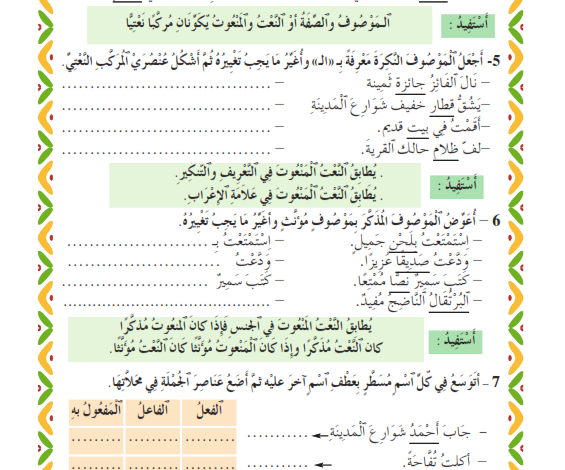 أَسْتَفِيدُ : اَلْمَوْصُوفُ وَالصِّفَةُ أَوْ اَلنَّعْتُ وَالْمَنْعُوتُ يُكَوِّنَانِ مُرَكَّبًا نَعْتِيًّا
5- أَجْعَلُ ٱلْمَوْصُوفَ النَّكِرَةَ مَعْرِفَةً بِـ «الـ» وأُغَيِّرُ مَا يَجِبُ تَغْيِيرُهُ ثُمَّ أَشْكُلُ عُنْصُرَيْ ٱلْمُرَكَّبِ النَّعْتِيِّ.
– نَالَ ٱلفَائِزُ جائزة ثَمِينة – ....................................
–يَشُقُّ قطار خفيف شَوَارِعَ ٱلْمَدِينَةِ – ....................................
–أَقَمْتُ فِي بيت قديم. – ....................................
–لَفّ ظلام حالك ٱلقريةَ. – ....................................
أَسْتَفِيدُ : . يُطَابِقُ النَّعْتُ ٱلْمَنْعُوتَ فِي ٱلتَّعْرِيفِ وَالتَّنْكِيرِ.
. يُطَابِقُ ٱلنَّعْتُ ٱلْمَنْعُوتَ فِي عَلاَمَةِ ٱلإِعْرَابِ.
6 – أُعَوِّضُ ٱلْمَوْصُوفَ ٱلْمُذَكَّرَ بِمَوْصُوفٍ مُؤَنَّثٍ وأُغَيِّرُ مَا يَجِبُ تَغْيِيرُهُ.
– اِسْتَمْتَعْتُ بِلَحْنٍ جَمِيلٍ. – اِسْتَمْتَعْتُ بِـ ........................
– وَدَّعْتُ صَدِيقًا عَزِيزًا. – وَدَّعْتُ ........................
– كَتَبَ سَمِيرٌ نَصًّا مُمْتِعًا. – كَتَبَ سَمِيرٌ ........................
– ٱلْبُرْتُقَالُ ٱلنَّاضِجُ مُفِيدٌ. – ....................................
أَسْتَفِيدُ : يُطَابِقُ النَّعْتُ ٱلْمَنْعُوتَ فِي ٱلجنسِ فَإِذَا كانَ ٱلمنعُوتُ مُذَكَّرًا
كان ٱلنَّعْتُ مُذَكَّرًا وإِذَا كَانَ ٱلْمَنْعوتُ مُؤَنَّثًا كَانَ ٱلنَّعْتُ مُؤَنَّثًا.
7 – أتَوَسَّعُ فِي كُلِّ ٱسْمٍ مُسَطَّرٍ بِعَطْفِ ٱسْمٍ آخرَ عليْهِ ثمَّ أَضَعُ عَنَاصِرَ ٱلْجُمْلَةِ فِي مَحَلاَّتِهَا.
ٱلفعلُ ٱلفاعلُ ٱلْمَفعُولُ بِهِ
– جَابَ أَحْمَدُ شَوَارِعَ ٱلْمَدِينَةِ ........... ......... ......... .........
– أكلتُ تُفَّاحَةً. ........... ......... ......... .........